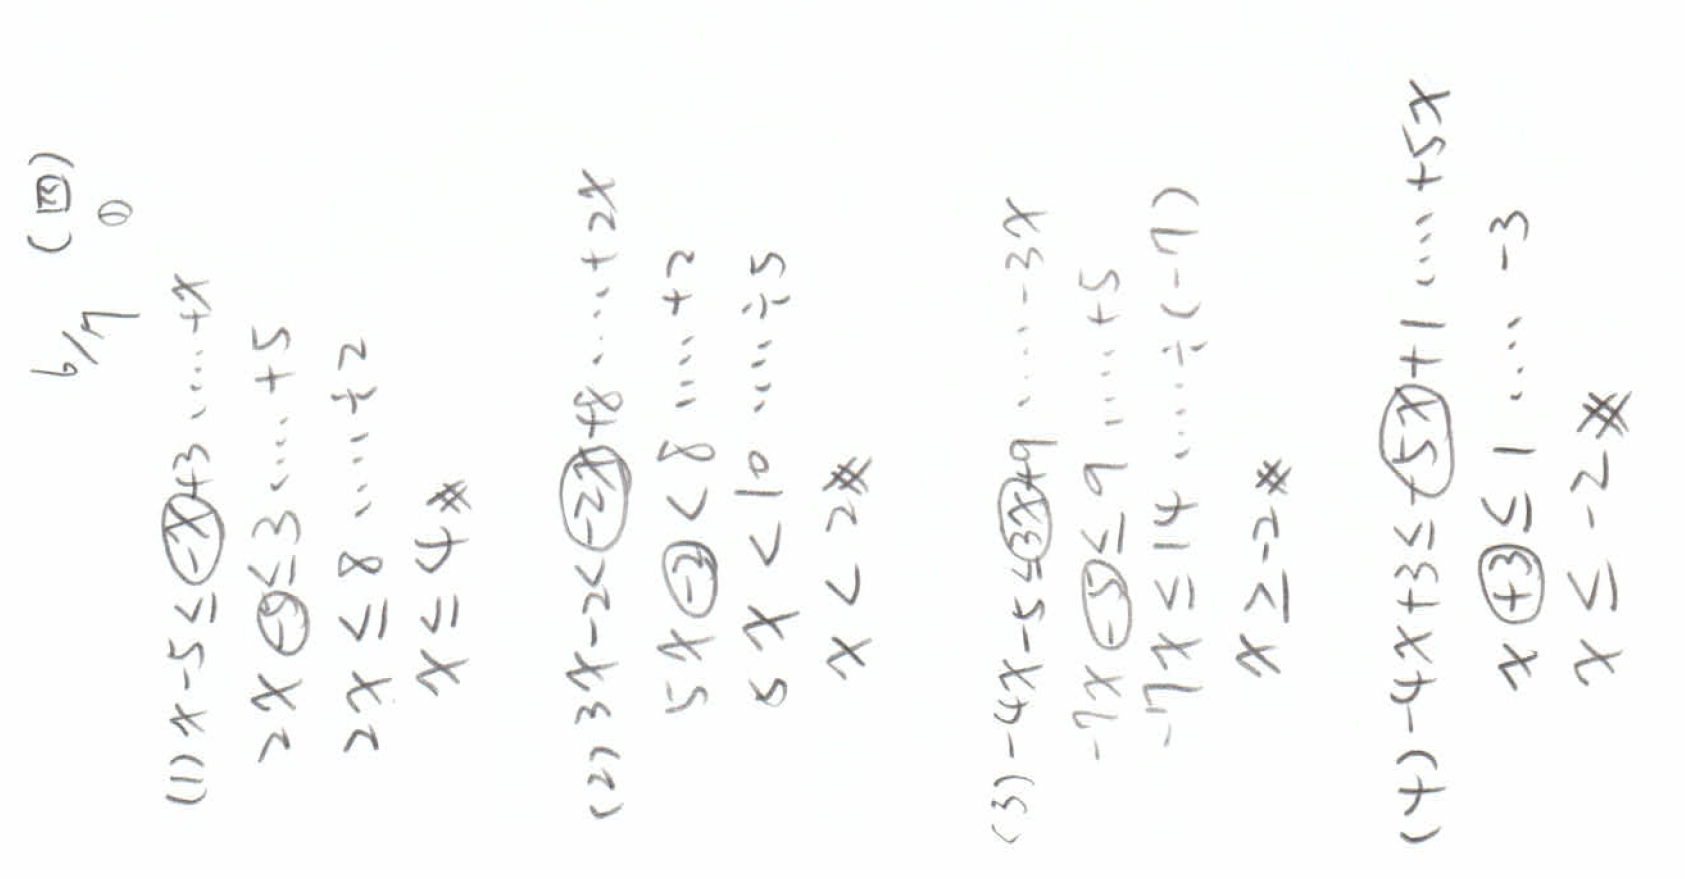 6/7 (四)
①
(1) x-5≤-x+3 ..... +x
2x-5≤3 ..... +5
2x≤8 ..... ÷2
x≤4#
(2) 3x-2<-2x+8 ..... +2x
5x-2<8 ..... +2
5x<10 ..... ÷5
x<2#
(3) -4x-5≤3x+9 ..... -3x
-7x-5≤9 ..... +5
-7x≤14 ..... ÷(-7)
x≥-2#
(4) -4x+3≤-5x+1 ..... +5x
x+3≤1 ..... -3
x≤-2#